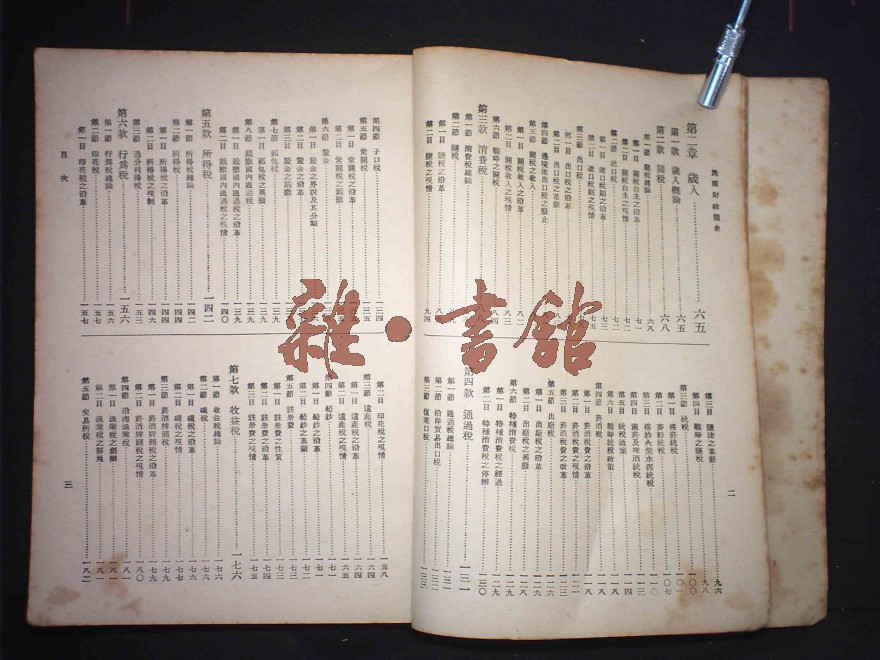 民國財政簡史
第二章 歲入 六五
第一款 歲入概論 六五
第二款 關稅 六八
第一節 關稅總論 六八
第一目 關稅自主之沿革 七一
第二目 關稅自主之現情 七二
第二節 進口稅 七二
第一目 進口稅則之沿革
第二目 進口稅則之現情 七五
第三節 出口稅
第一目 出口稅之沿革
第二目 出口稅之革新
第四節 邊境進出口稅之廢止
第五節 關稅之收入
第一目 關稅收入之沿革 八二
第二目 關稅收入之現情 八三
第六節 戰時之關稅 八四
第三款 消費稅
第一節 消費稅總論
第二節 鹽稅
第一目 鹽稅之沿革
第二目 鹽稅之現情 九四
第三目 鹽法之革新 九六
第四目 戰時之鹽稅 九八
第三節 統稅 一〇〇
第一目 捲菸統稅 一〇一
第二目 麥粉統稅 一〇七
第三目 棉紗火柴水泥統稅 一一〇
第四目 薰菸及啤酒統稅 一一三
第五目 統稅通案 一一四
第六目 戰時統稅政策 一一八
第四節 菸酒稅 一一八
第一目 菸酒稅費之沿革 一一八
第二目 菸酒稅費之現情
第三目 菸酒稅費之改革
第五節 出廠稅
第一目 出廠稅之沿革
第二目 出廠稅之興廢
第六節 特種消費稅 一二九
第一目 特種消費稅之經過 一二九
第二目 特種消費稅之停辦 一三〇
第四款 通過稅 一三一
第一節 通過稅總論 一三一
第二節 沿岸貿易出口稅 一三二
第三節 復進口稅 一三三
二
第四節 子口稅 一三四
第五節 常關稅 一三五
第一目 常關稅之沿革
第二目 常關稅之裁撤
第六節 釐金
第一目 釐金之界說及其分類
第二目 釐金之沿革
第三目 釐金之裁撤
第七節 郵包稅 一三九
第一目 郵包稅之興廢 一三九
第八節 裁撤國內通過稅 一三九
第一目 裁撤國內通過稅之沿革 一三九
第二目 裁撤國內通過稅之現情 一四〇
第五款 所得稅 一四二
第一節 所得稅總論 一四二
第二節 所得稅 一四四
第一目 所得稅之沿革 一四四
第二目 所得稅之現制 一四六
第三節 過分利得稅 一五三
第六款 行爲稅 一五六
第一節 行爲稅總論 一五六
第二節 印花稅 一五七
第一目 印花稅之沿革 一五七
第二目 印花稅之現情 一五八
第三節 遺產稅 一六四
第一目 遺產稅之沿革 一六四
第二目 遺產稅之現情 一六五
第四節 船鈔 一七一
第一目 船鈔之沿革 一七一
第二目 船鈔之革新 一七二
第五節 註册費 一七三
第一目 註册費之性質 一七三
第二目 註册費之沿革 一七四
第三目 註册費之現情 一七五
第七款 收益稅 一七六
第一節 收益稅總論 一七六
第二節 礦稅 一七六
第一目 礦稅之沿革 一七六
第二目 礦稅之現情 一七七
第三節 菸酒牌照稅 一七九
第一目 菸酒牌照稅之沿革 一七九
第二目 菸酒牌照稅之現情 一八〇
第四節 沿海漁業稅 一八一
第一目 漁業稅之創辦 一八一
第二目 漁業稅之豁免 一八一
第五節 交易所稅 一八二
目次
三
雜·書館